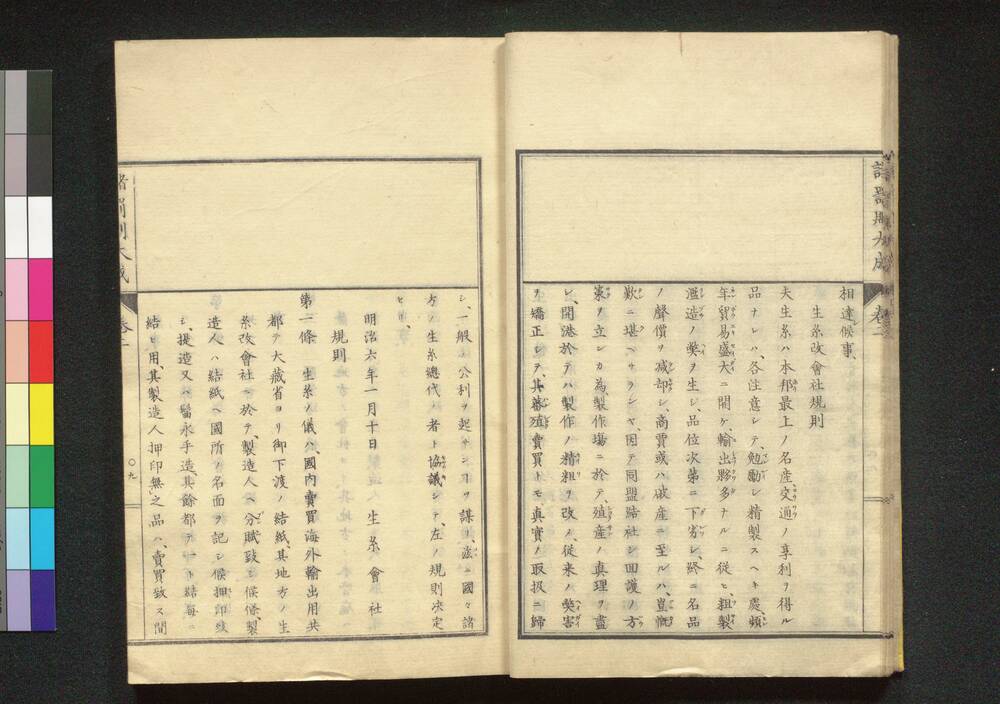 相達候事、
生糸改會社規則
夫生糸ハ本邦最上ノ名産交通ノ享利ヲ得ル
品ナレハ、各注意シテ、勉勵シ精製スヘキ處、頻
年貿易盛大ニ開ケ、輸出夥多ナルニ從ヒ、粗製
濫造ノ獘ヲ生シ、品位次第ニ下劣シ、終ニ名品
ノ聲價ヲ減却シ、商賈或ハ破産ニ至ルハ、豈慨
歎ニ堪ヘケンヤ、因テ同盟結社シ回護ノ方
策ヲ立シカ為製作場ニ於テ、殖産ノ真理ヲ盡
シ、開港於テハ製作ノ精粗ヲ改メ、従来ノ獘害
ヲ矯正シテ、其蕃殖賣買トモ、真實ノ取扱ニ歸
シ、一般ノ公利ヲ起サン丁ヲ謀リ、茲ニ國々諸
方ノ生糸總代ノ者ト協議シテ、左ノ規則決定
ヒ
明治六年一月十日 生糸會社
規則
第一條 生糸ノ儀ハ、國内賣買海外輸出用共
都テ大藏省ヨリ御下渡ノ結紙其地方ノ生
糸改會社ニ於テ、製造人ヘ分賦致シ候條、製
造人ハ結紙ヘ國所ノ名面ヲ記シ候押印致
シ、提造又ハ鬠永手造、其餘都テ一ト結毎ニ
結ヒ用、其製造人押印無之品ハ、賣買致ス間
諸
大成
卷二
〇九